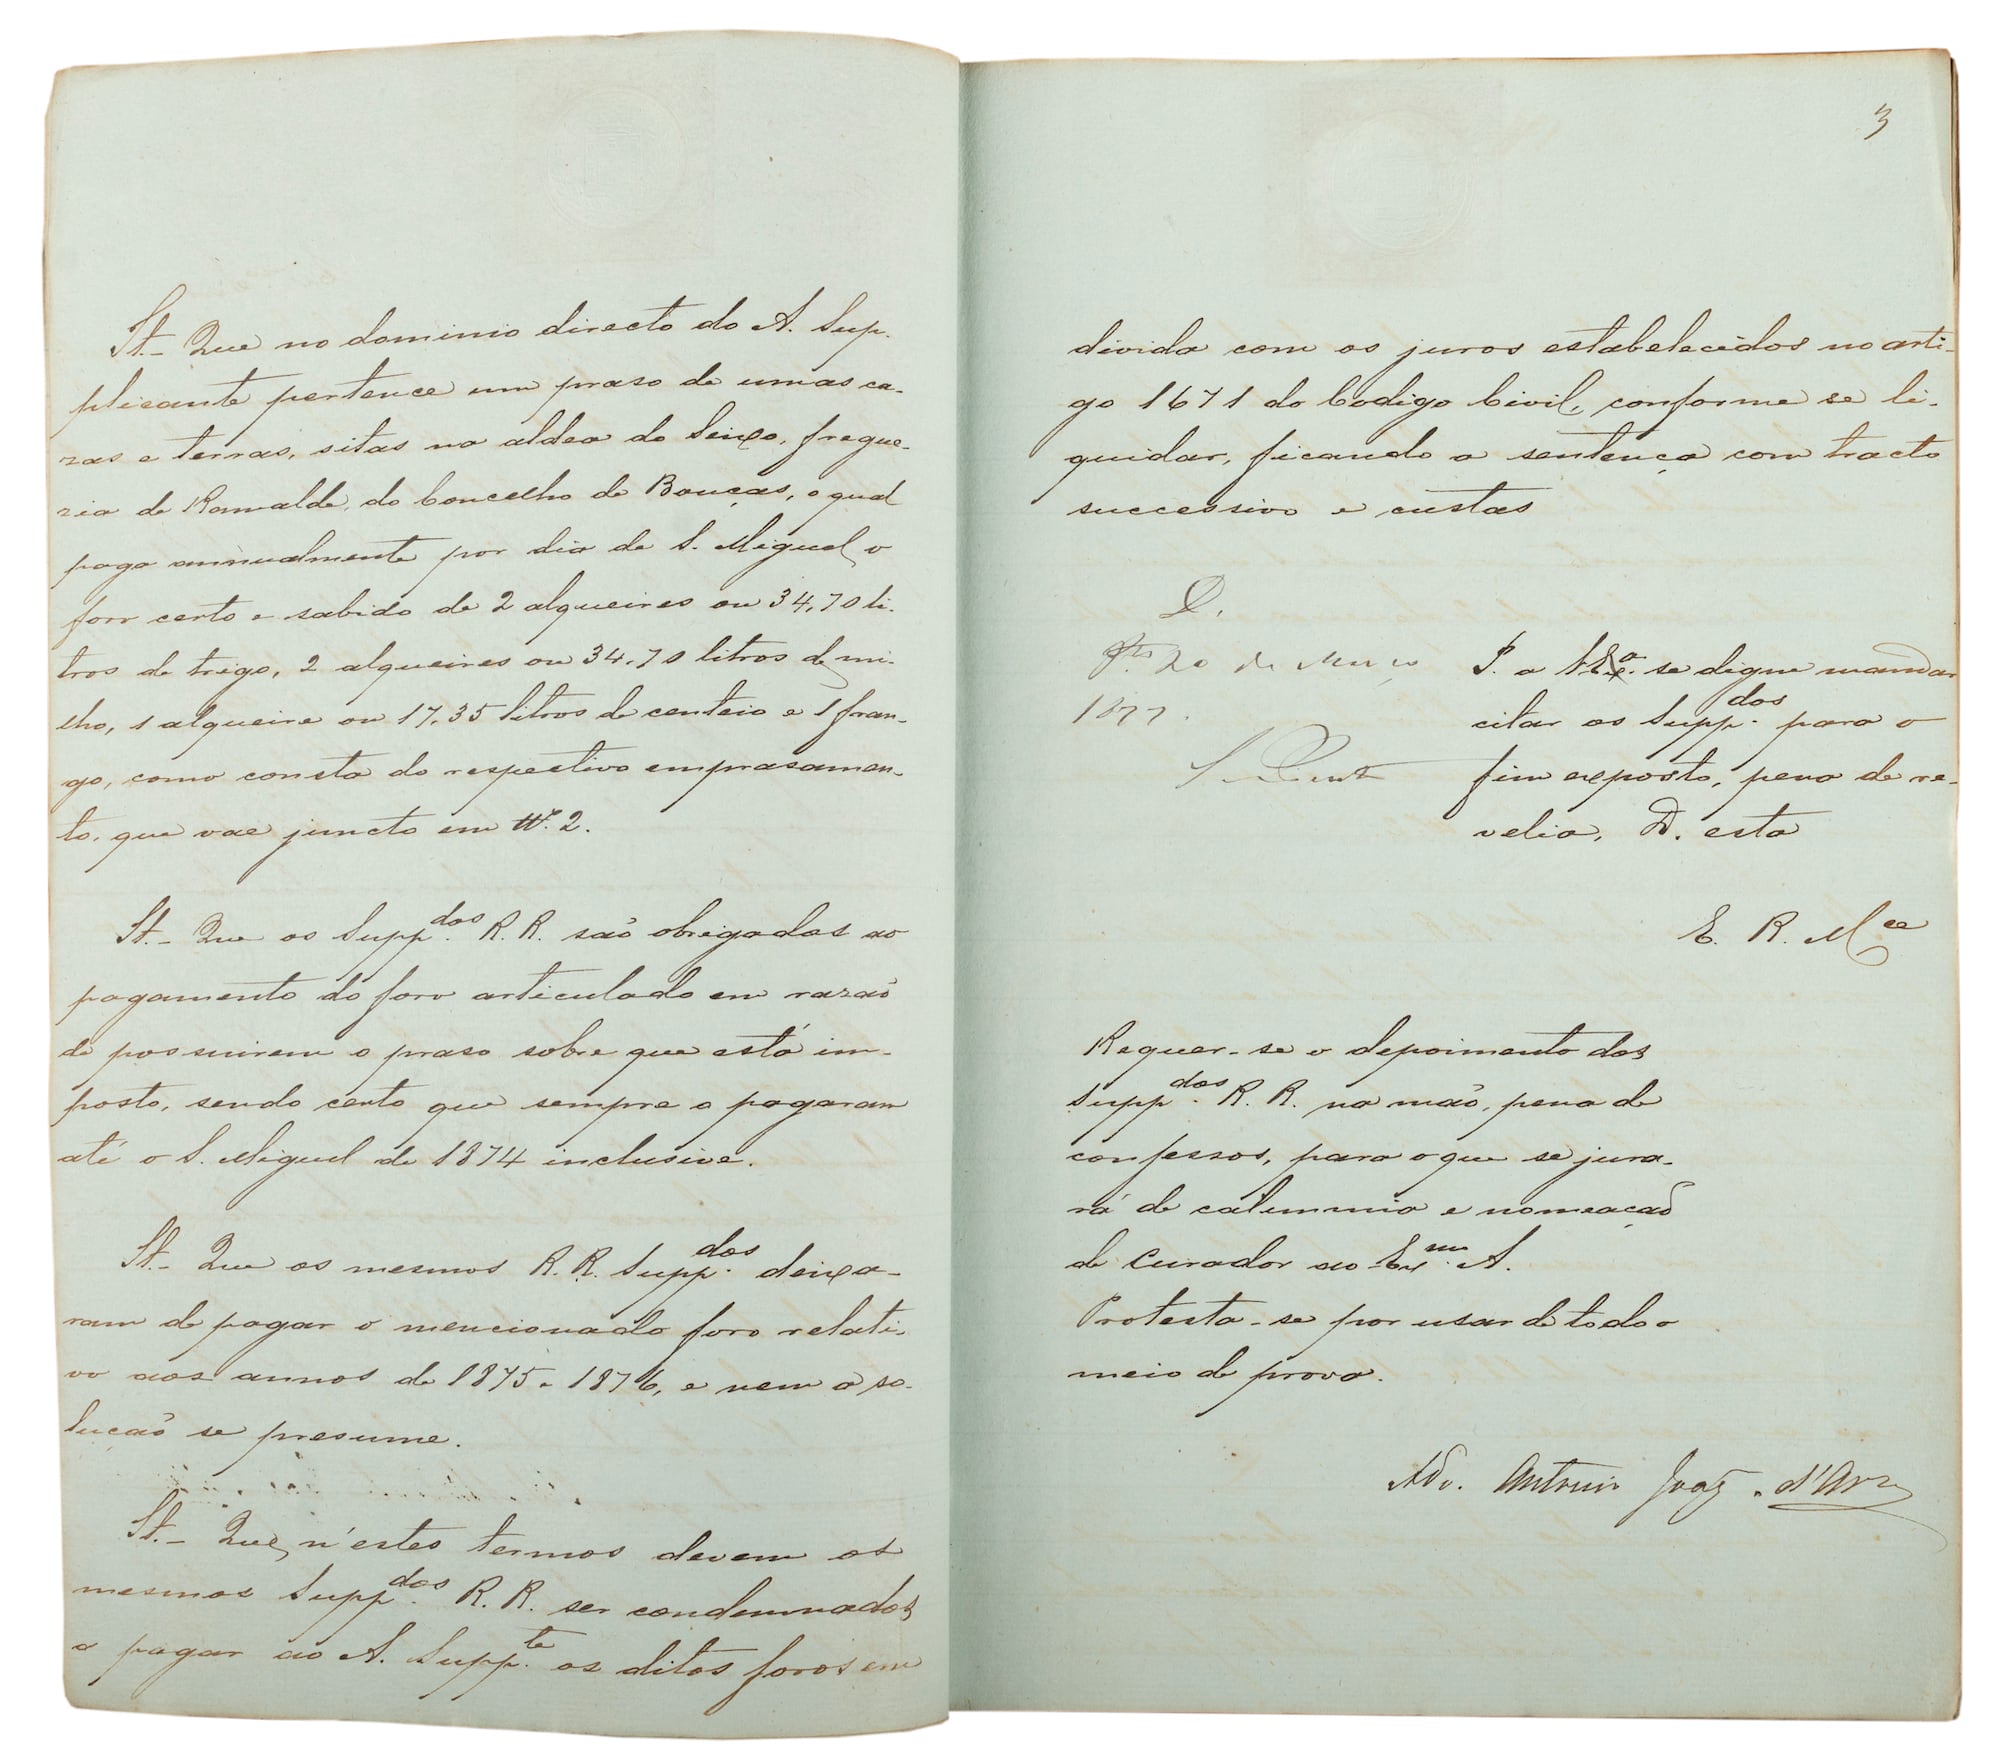 It.- Que no dominio directo do A. Sup-
plicante pertence um praso de umas ca-
zas e terras, sitas na aldea do Seixo, fregue-
zia de Ramalde, do Concelho de Bouças, o qual
paga annualmente por dia de S. Miguel o
foro certo e sabido de 2 alqueires ou 34,70 li-
tros de trigo, 2 alqueires ou 34,70 litros de mi-
lho, 1 alqueire ou 17,35 litros de centeio e 1 fran-
go, como consta do respectivo emprasamen-
to, que vae juncto em Nº. 2.
It.- Que os Supp.dos R.R. são obrigados ao
pagamento do foro articulado em rasaõ
de possuirem o praso sobre que está im-
posto, sendo certo que sempre o pagaram
até o S. Miguel de 1874 inclusive.
It.- Que os mesmos R.R. Supp.dos deixa-
ram de pagar o mencionado foro relati-
vo aos annos de 1875 e 1876, e nem a so-
lução se presume.
It.- Que, n'estes termos devem os
mesmos Supp.dos R.R. ser condemnados
a pagar ao A. Supp.te os ditos foros em
3
divida com os juros estabelecidos no arti-
go 1671 do Codigo Civil, conforme se li-
quidar, ficando a sentença com tracto
successivo e custas
D.
P.to 20 de Março
1877.
P. a V.Ex.a se digne mandar
citar os Supp.dos para o
fim exposto, pena de re-
velia, D. esta
E. R. Mce
Requer-se o depoimento dos
Supp.dos R.R. na mão, pena de
confessos, para o que se jura-
rá de calumnia e nomeação
de curador ao Ex.mo A.
Protesta-se por usar de todo o
meio de prova.
Adv. Antonio Joaq.